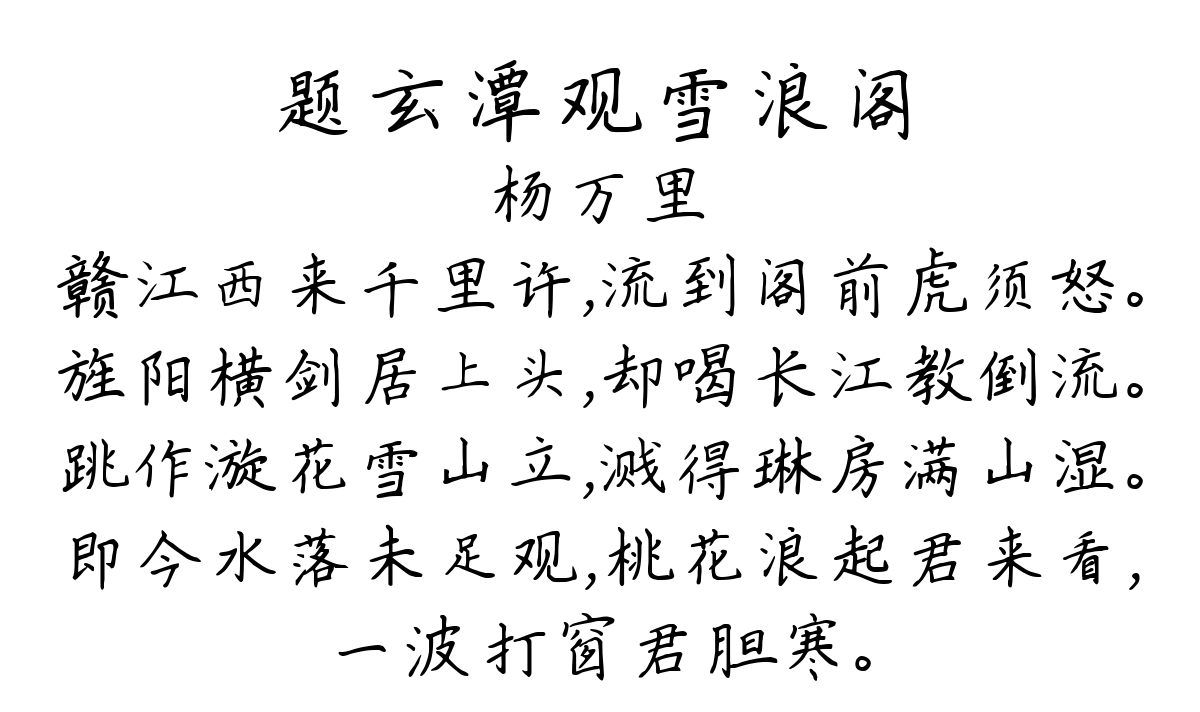 题玄潭观雪浪阁
杨万里
赣江西来千里许,流到阁前虎须怒。
旌阳横剑居上头,却喝长江教倒流。
跳作漩花雪山立,溅得琳房满山湿。
即今水落未足观,桃花浪起君来看,
一波打窗君胆寒。